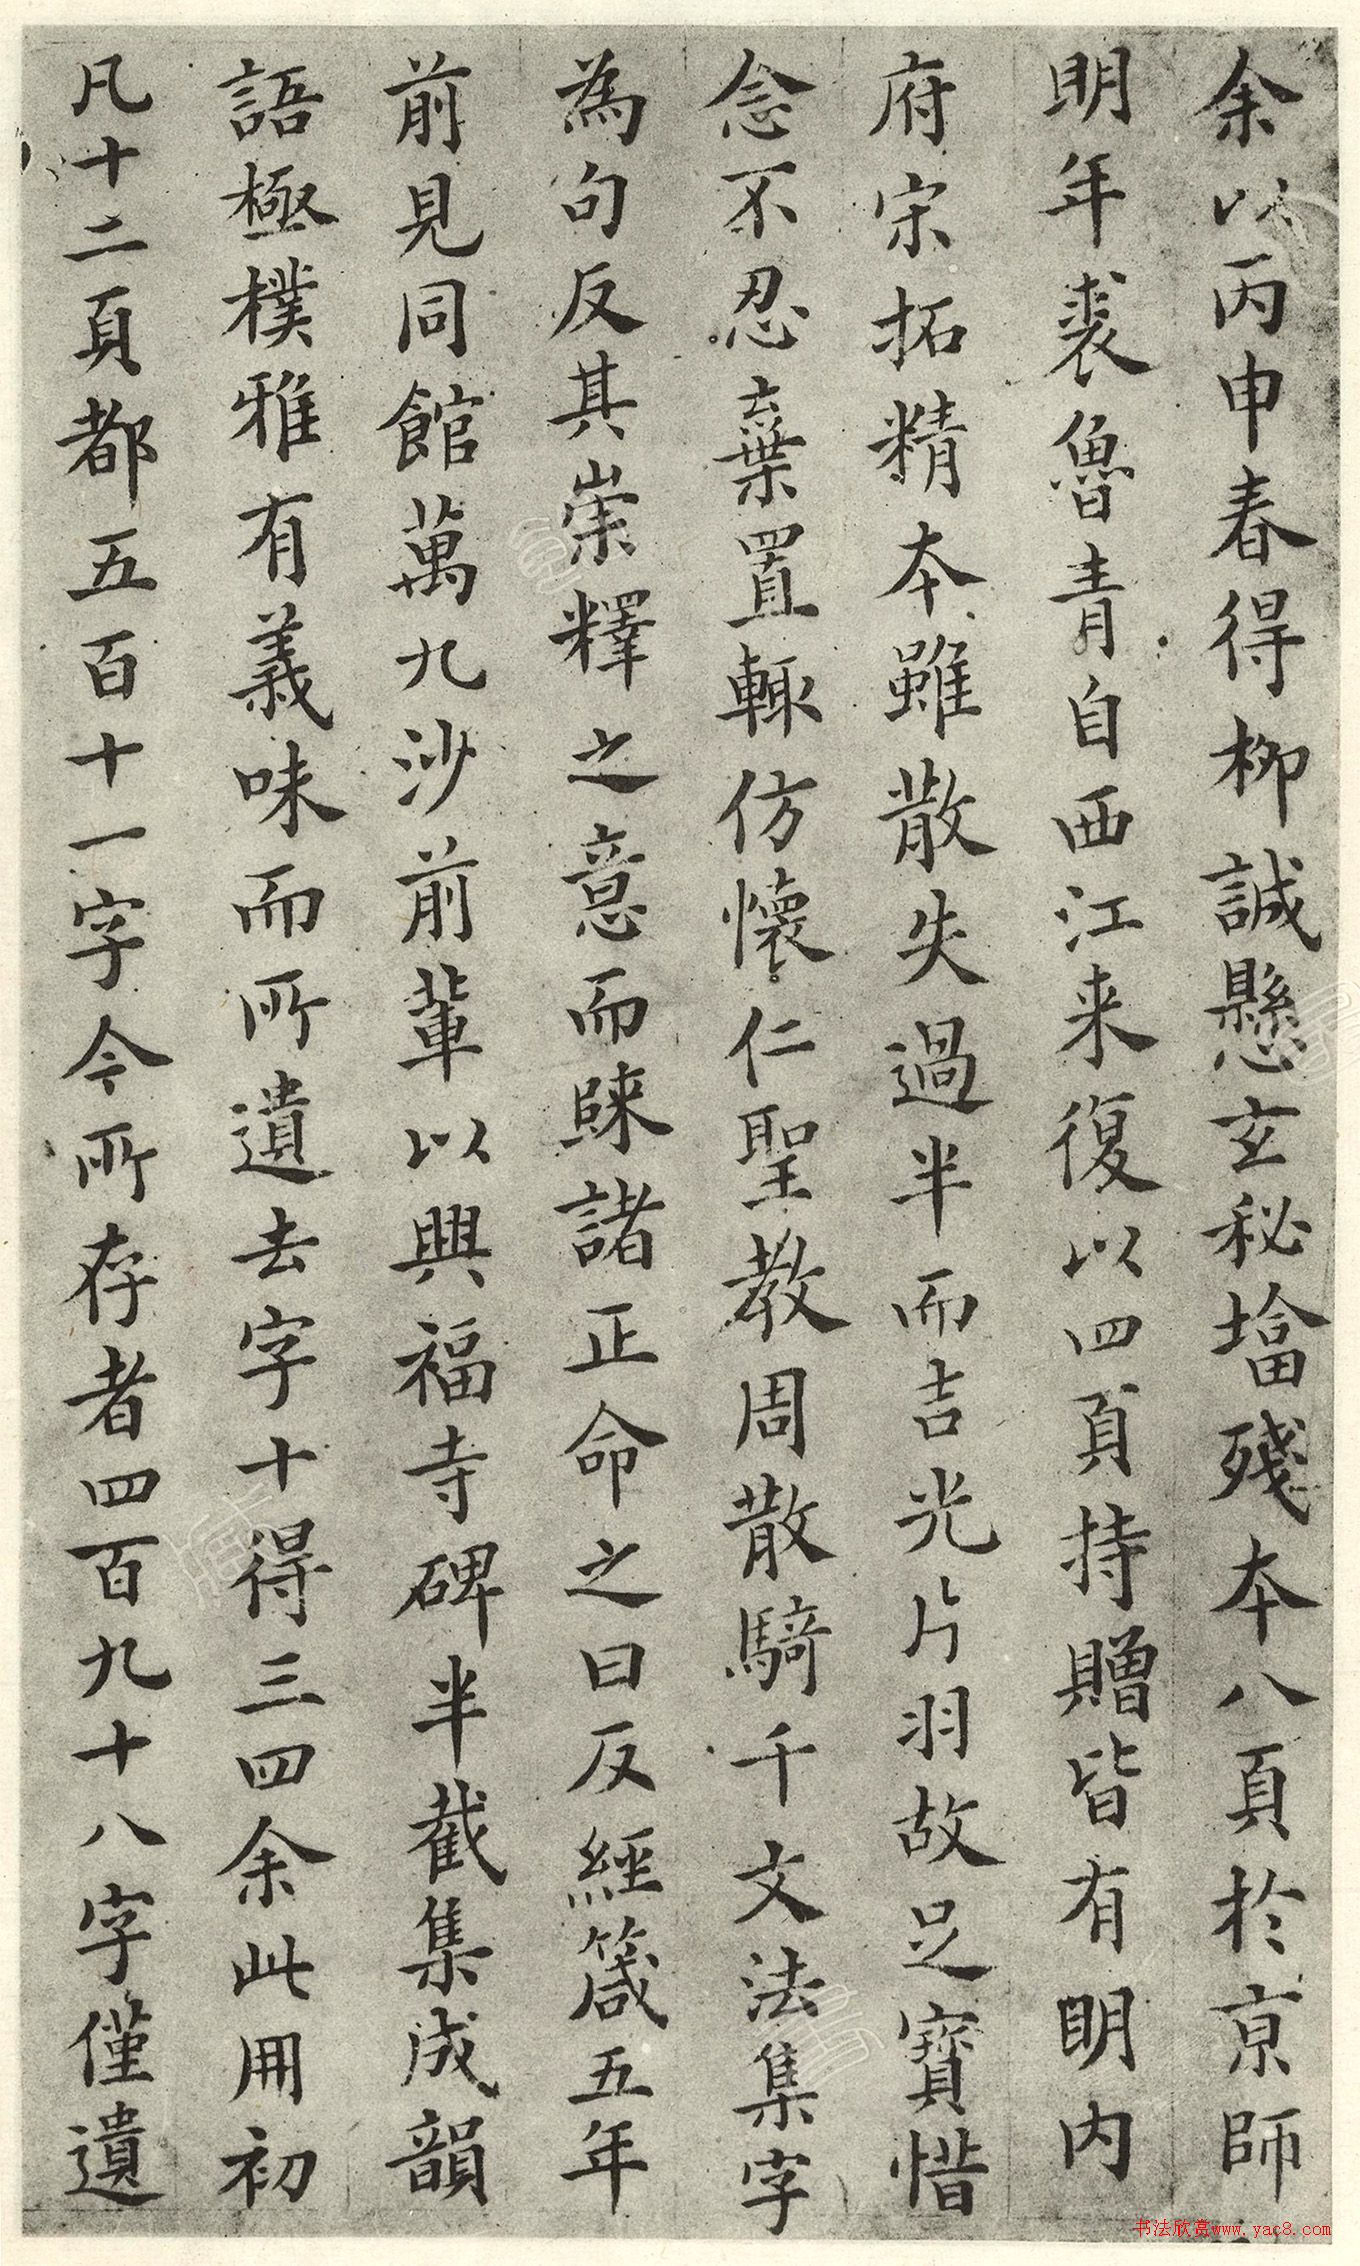 余以丙申春得柳誠懸玄秘墖殘本八頁於京師
明年裘魯青自西江来復以四頁持贈皆有明内
府宋拓精本雖散失過半而吉光片羽故足寶惜
念不忍棄置輒仿懷仁聖教周散騎千文法集字
為句反其崇釋之意而睞諸正命之曰反經箴五年
前見同館萬九沙前輩以興福寺碑半截集成韻
語極樸雅有義味而所遺去字十得三四余此用初
凡十二頁都五百十一字今所存者四百九十八字僅遺
书法欣赏www.yac8.com